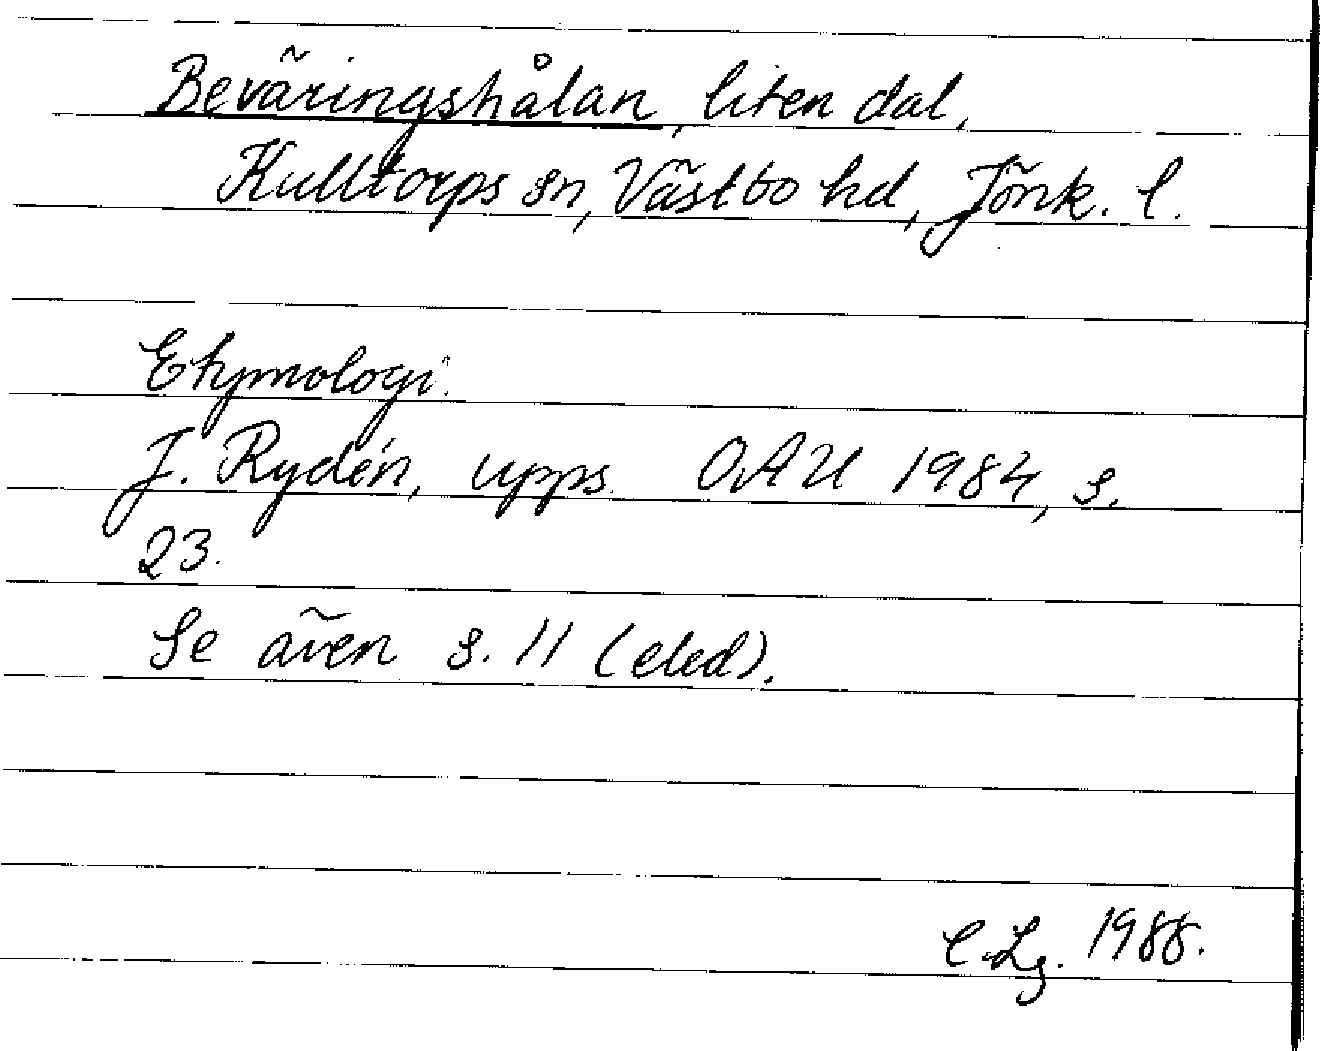 Beväringshålan, liten dal,
Kulltorps sn, Västbo hd, Jönk. l.
Etymologi.
J. Rydén, upps. OAU 1984, s.
23.
Se även s. 11 (eled).
C.Lg. 1988.